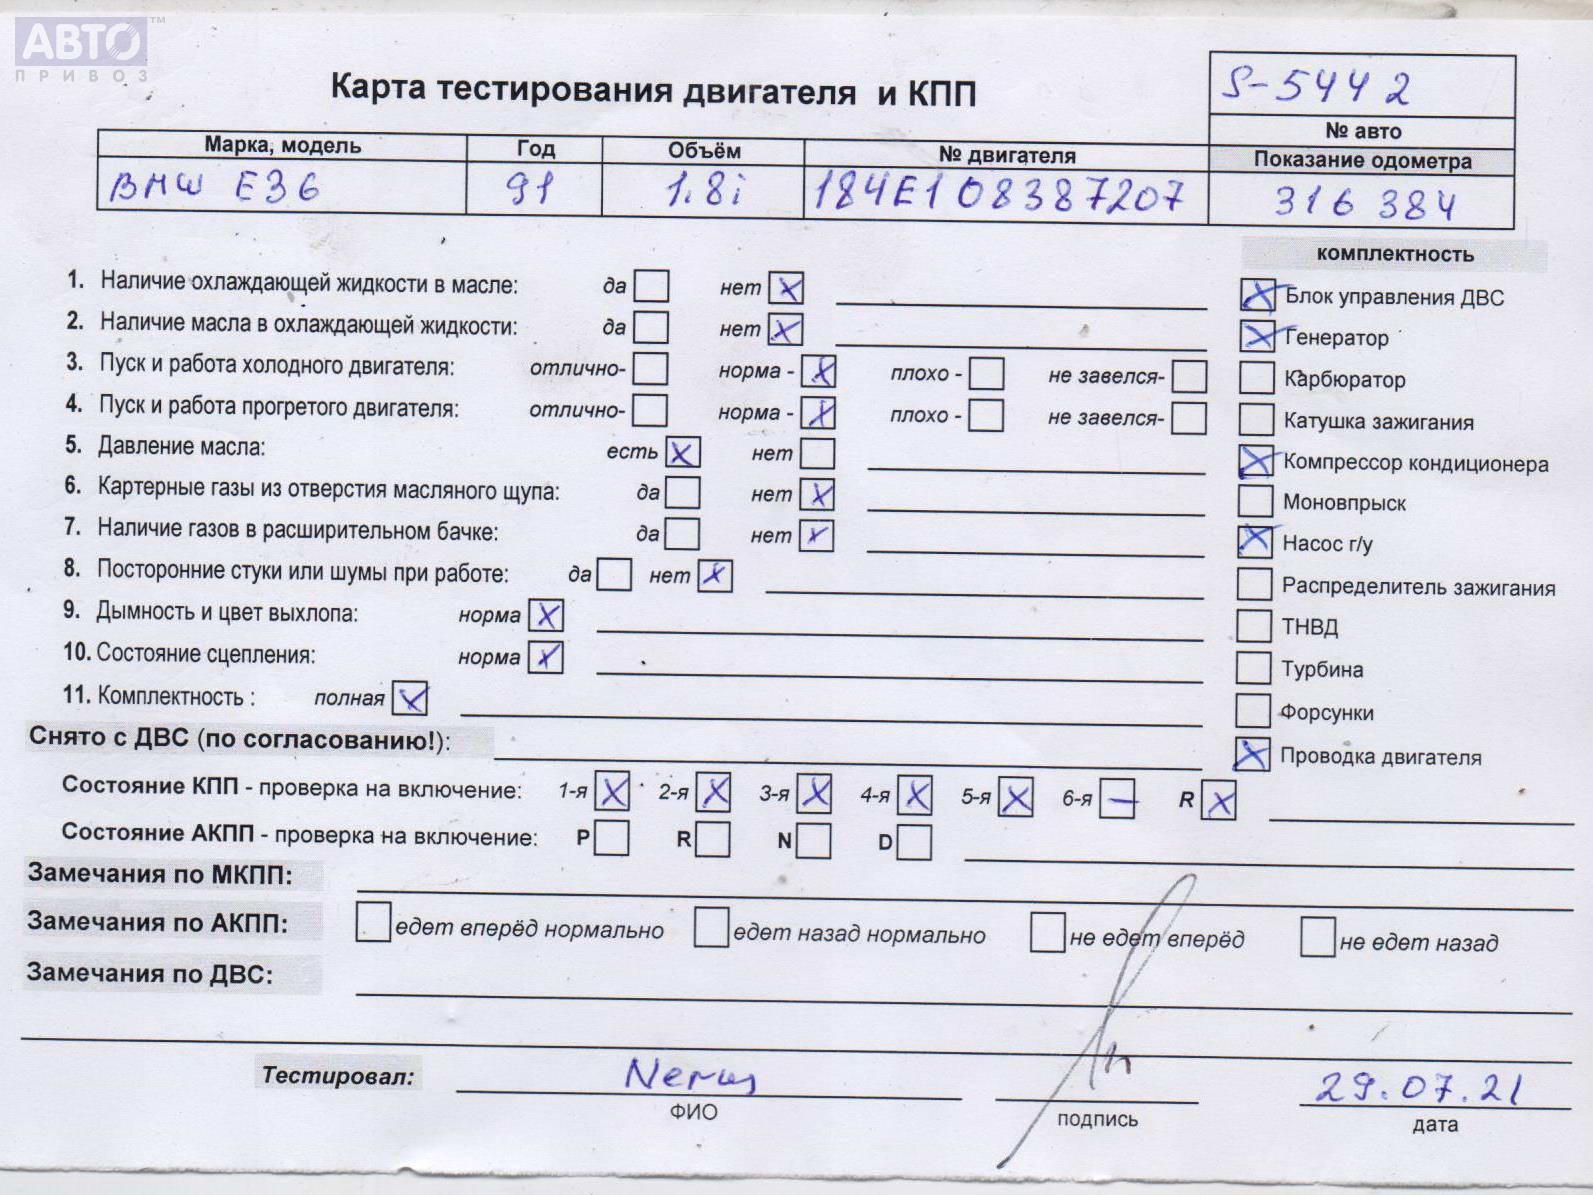 АВТО™
ПРИВОЗ
Карта тестирования двигателя и КПП
S-5442
№ авто
Марка, модель Год Объём № двигателя Показание одометра
BMW E36 91 1.8i 184E1 08387207 316 384
комплектность
1. Наличие охлаждающей жидкости в масле: да нет X
2. Наличие масла в охлаждающей жидкости: да нет X
3. Пуск и работа холодного двигателя: отлично- норма - X плохо - не завелся-
4. Пуск и работа прогретого двигателя: отлично- норма - X плохо - не завелся-
5. Давление масла: есть X нет
6. Картерные газы из отверстия масляного щупа: да нет X
7. Наличие газов в расширительном бачке: да нет X
8. Посторонние стуки или шумы при работе: да нет X
9. Дымность и цвет выхлопа: норма X
10. Состояние сцепления: норма X
11. Комплектность : полная X
X Блок управления ДВС
X Генератор
Карбюратор
Катушка зажигания
X Компрессор кондиционера
Моновпрыск
X Насос г/у
Распределитель зажигания
ТНВД
Турбина
Форсунки
X Проводка двигателя
Снято с ДВС (по согласованию!):
Состояние КПП - проверка на включение: 1-я X 2-я X 3-я X 4-я X 5-я X 6-я — R X
Состояние АКПП - проверка на включение: P R N D
Замечания по МКПП:
Замечания по АКПП: едет вперёд нормально едет назад нормально не едет вперёд не едет назад
Замечания по ДВС:
Тестировал: 29.07.21
ФИО подпись дата